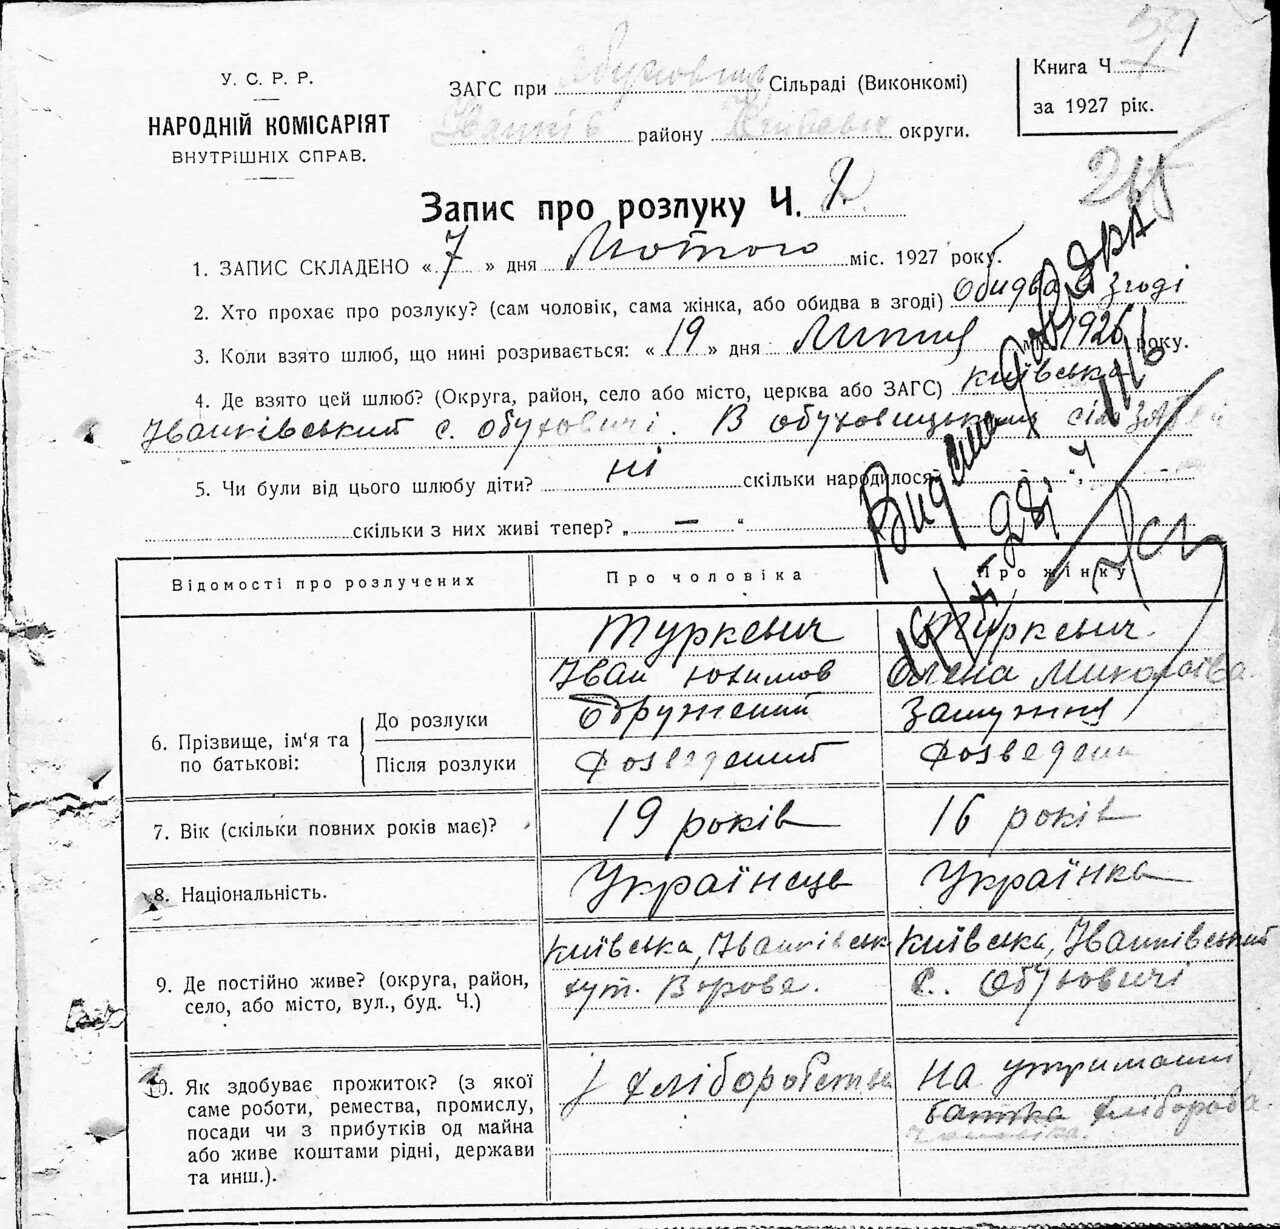 59
У. С. Р. Р.
НАРОДНІЙ КОМІСАРІЯТ
ВНУТРІШНІХ СПРАВ.
ЗАГС при Обуховицк Сільраді (Виконкомі)
Іванків району Київськ округи.
Книга Ч.
за 1927 рік.
Запис про розлуку Ч. 2
1. ЗАПИС СКЛАДЕНО «7» дня Лютого міс. 1927 року.
2. Хто прохає про розлуку? (сам чоловік, сама жінка, або обидва в згоді) Обидва в згоді
3. Коли взято шлюб, що нині розривається: «19» дня Липня 1926 року.
4. Де взято цей шлюб? (Округа, район, село або місто, церква або ЗАГС) Київська
Іванківський с. Обуховичі. В обуховицькому сіл ЗАГСі
5. Чи були від цього шлюбу діти? ні скільки народилося?
скільки з них живі тепер? „ — “
Відомості про розлучених Про чоловіка Про жінку
6. Прізвище, ім'я та по батькові:
До розлуки
Після розлуки
Туркевич
Іван Юхимов
Одружений
Розведений
Туркевич
Олена Миколаїва
Замужня
Розведена
7. Вік (скільки повних років має)? 19 років 16 років
8. Національність. Українець Українка
9. Де постійно живе? (округа, район,
село, або місто, вул., буд. Ч.)
Київська, Іванківськ
хут. Ворове.
Київська, Іванківський
с. Обуховичі
10. Як здобуває прожиток? (з якої
саме роботи, ремества, промислу,
посади чи з прибутків од майна
або живе коштами рідні, держави
та инш.).
з хліборобства
На утриманні
батька хлібороба
чоловіка.